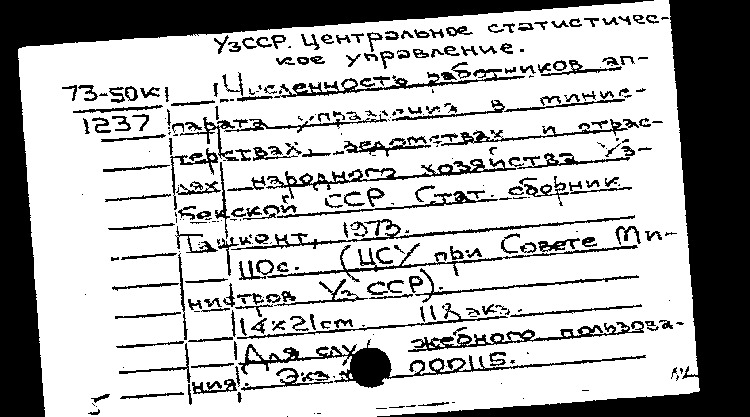 УзССР. Центральное статистичес-
кое управление.
73-50К Численность работников ап-
1237 парата управления в минис-
терствах, ведомствах и отрас-
лях народного хозяйства Уз-
бекской ССР. Стат. сборник
Ташкент, 1973.
110с. (ЦСУ при Совете Ми-
нистров УзССР).
14х21см. 118 экз.
Для служебного пользова-
ния. Экз. № 000115.